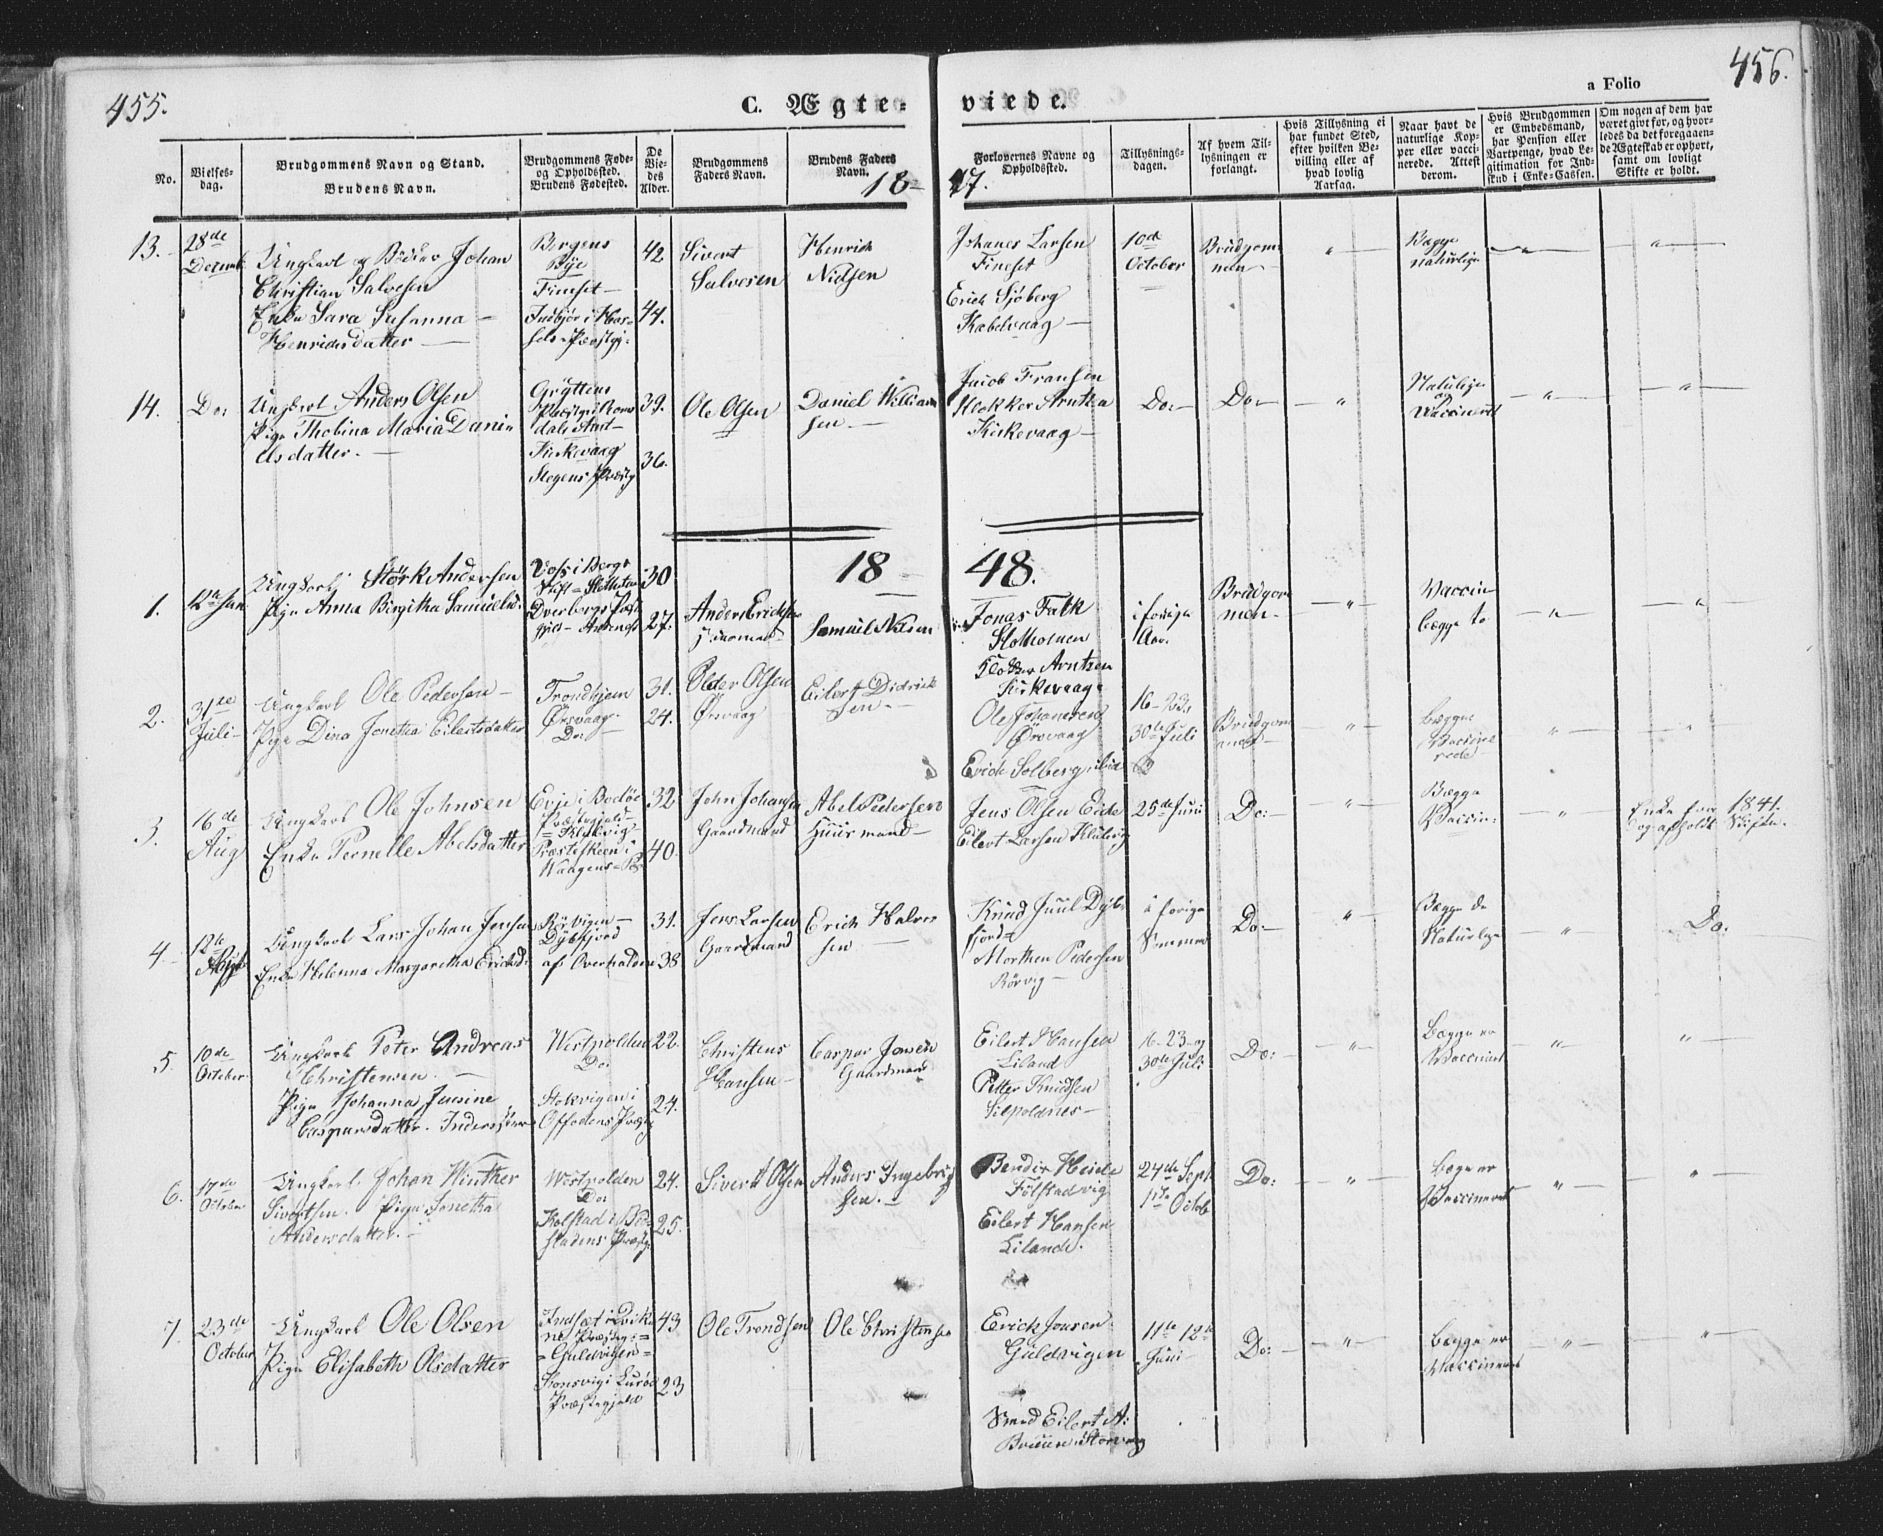 455.
C. Ægte-
viede.
a Folio
456.
No.
Vielses-
dag.
Brudgommens Navn og Stand.
Brudens Navn.
Brudgommens Føde-
og Opholdssted.
Brudens Fødested.
De
Vie-
des
Alder.
Brudgommens
Faders Navn.
Brudens Faders
Navn.
Forlovernes Navne og
Opholdssted.
Tillysnings-
dagen.
Af hvem Til-
lysningen er
forlangt.
Hvis Tillysning ei
har fundet Sted,
efter hvilken Be-
villing eller af
hvad lovlig
Aarsag.
Naar havt de
naturlige Kop-
per eller vacci-
nerede. Attest
derom.
Hvis Brudgommen
er Embedsmand,
har Pension eller
Vartpenge, hvad Le-
gitimation for Ind-
skud i Enke-Cassen.
Om nogen af dem har
været givt før, og hvor-
ledes da det foregaaen-
de Ægteskab er ophørt,
samt om lovligt
Skifte er holdt.
18 47.
13.
28de
Decemb
Ungkarl og Bödker Johan
Christian Salvesen
Enke Sara Susanna
Henrichsdatter
Bergens
Bye
Finset
42
44.
Sivert
Salvesen
Henrich
Nielsen
Johanes Larsen
Finset
Erich Sjöberg
Kabelvaag
10de
October
Brudgom
men
Begge
naturlige
14.
Do:
Ungkarl Anders Olsen
Pige Thobina Maria Dani
elsdatter.
Gryttens
Præstg: i Roms
dals Amt
Kirkevaag
Stegens Præstg
39.
36.
Ole Olsen
Daniel William
sen
Jacob Fransen
Klokker Arntzen
Kirkevaag
Do:
Do
Naturlige
og
Vaccineret
18 48.
1.
12te Jan
Ungkarl Störk Andersen
Pige Anna Birgitha Samuelsd.
Voss i Bergs
Stift
30
27.
Anders Erichsen
Samuel Nilsen
Jonas Falk
Klokker Arntzen
Kirkevaag
i forige
Aar.
Brudgom
men
Vaccin
begge to
2.
31te
Juli
Ungkarl Ole Pedersen
Pige Dina Jonetha Eilertsdatter
Trondhjem
Örsvaag
Do:
31.
24.
Peder Olsen
Örsvaag
Eilert Didrich
sen
Ole Johansen
Örsvaag
Erich Solberg ibid
16-23
30te Juli
Brudgom
men
begge
Vaccine
rede
3.
16de
Aug
Ungkarl Ole Johnsen
Enke Pernelle Abelsdatter
Evje i Bodöe
Præstegjeld
Waagens
32
40.
John Johansen
Gaardmand
Abel Pedersen
Huusmand
Jens Olsen Eide
Eilert Larsen
25de Juni
Do:
Begge
Vaccin:
Enke fra 1841.
og afholdt Skifte.
4
12te
Ungkarl Lars Johan Jensen
Enke Helenna Margaretha Erichsd:
Rörvigen
Dybfjord
af Overhalden
31.
38
Jens Larsen
Gaardmand
Erich Halvor
sen
Knud Juul Dyb
fjord
Morthen Pedersen
Rörvig
i forige
Sommer
Do:
Begge de
Naturlige
Do.
5.
10de
October
Ungkarl Peter Andreas
Christensen.
Pige Johanna Jensine
Caspersdatter.
Westpolden
Do:
Stokvigen i
Ofodens Præstg
22.
24.
Christens
Hansen
Caspar Jonsen
Gaardmand
Eilert Hansen
Liland
Petter Knudsen
16-23-og
30te Juli
Do:
begge er
Vaccineret
6.
17de
October
Ungkarl Johan Winther
Sivertsen. Pige Jonetha
Andersdatter.
Westpolden
Do:
Kolstad i Bei
stadens Præstg
24.
25.
Sivert Olsen
Anders Ingebrigt
sen.
Bendix Heide
Fölstadvig
Eilert Hansen
Liland.
24de Sept
1ste Octob
Do:
begge er
Vaccineret
7.
23de
October
Ungkarl Ole Olsen
Pige Elisabeth Olsdatter
Indset i Qvik
ne Præstg:
Guldvigen
Konsvig i Luröe
Præstegjeld
43
23
Ole Trondsen
Ole Christensen
Erich Jonsen
Guldvigen
Smed Eilert A:
Bruun Storvaag
11te 12te
Juni
Do:
begge er
Vaccineret